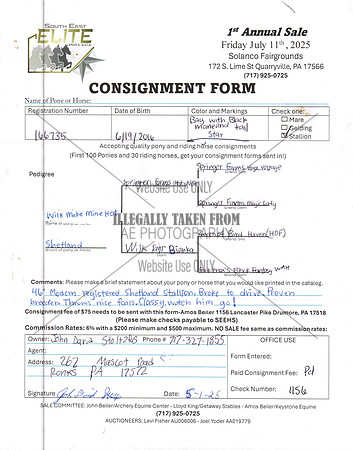 SOUTH EAST
ELITE
PONY SALE
1st Annual Sale
Friday July 11th, 2025
Solanco Fairgrounds
172 S. Lime St Quarryville, PA 17566
(717) 925-0725
CONSIGNMENT FORM
Name of Pony or Horse:
Registration Number
Date of Birth
Color and Markings
Check one:
166735
6/19/2016
Bay with Black
mane and tail
Star
Mare
Gelding
Stallion
Accepting quality pony and riding horse consignments
(First 100 Ponies and 30 riding horses, get your consignment forms sent in!)
Pedigree
Website Use ONLY
Wilk Make Mine HOF
ILLEGALLY TAKEN FROM
AE PHOTOGRAPHY
Shetland
Wilk Bianka
Website Use ONLY
Comments: Please make a brief statement about your pony or horse that you would like printed in the catalog.
46" Modern registered Shetland Stallion. Broke to drive. Proven
breeder. Throws nice foals. Classy, watch him go!
Consignment fee of $75 needs to be sent with this form-Amos Beiler 1156 Lancaster Pike Drumore, PA 17518
(Please make checks payable to SEEHS)
Commission Rates: 6% with a $200 minimum and $500 maximum. NO SALE fee same as commission rates:
Owner: John David Stoltzfus Phone # 717-327-1855
Agent:
Address: 262 Mascot Road
Ronks PA 17572
Signature
Date 5-1-25
OFFICE USE
Form Entered:
Paid Consignment Fee: Pd
Check Number: 1156
SALE COMMITTEE: John Beiler/Archery Equine Center - Lloyd King/Getaway Stables - Amos Beiler/Keystone Equine
(717) 925-0725
AUCTIONEERS: Levi Fisher AU06006 - Joel Yoder AA019779